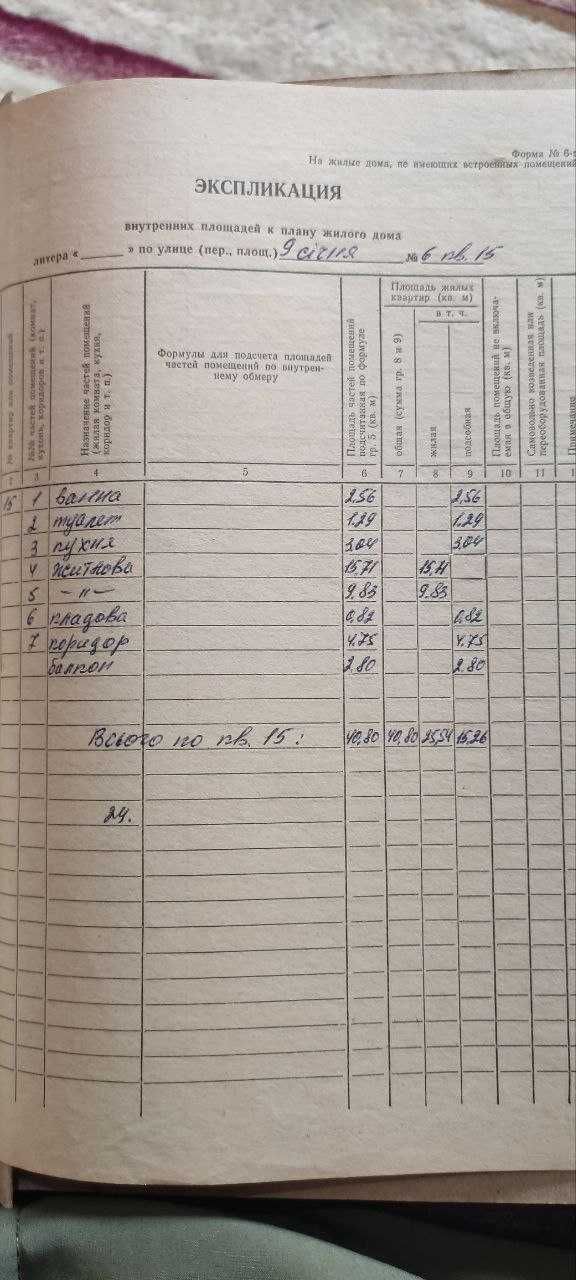 Форма № 6-
На жилые дома, не имеющих встроенных помещений
ЭКСПЛИКАЦИЯ
внутренних площадей к плану жилого дома
литера « » по улице (пер., площ.) 9 січня № 6 кв. 15
№ квартир или помещений
№№ частей помещений (комнат, кухонь, коридоров и т. п.)
Назначение частей помещений (жилая комната, кухня, коридор и т. п.)
Формулы для подсчета площадей
частей помещений по внутрен-
нему обмеру
Площадь частей помещений подсчитанная по формуле гр. 5 (кв. м)
Площадь жилых
квартир (кв. м)
общая (сумма гр. 8 и 9)
в т. ч.
жилая
подсобная
Площадь помещений не включа-
емая в общую (кв. м)
Самовольно возведенная или
переоборудованная площадь (кв. м)
Примечание
3 4 5 6 7 8 9 10 11 1
15 1 ванна 2.56 2.56
2 туалет 1.29 1.29
3 кухня 3.04 3.04
4 житлова 15,71 15,71
5 –„– 9.83 9.83
6 кладова 0,82 0,82
7 коридор 4.75 4.75
балкон 2.80 2.80
Всього по кв. 15: 40,80 40,80 25,54 15,26